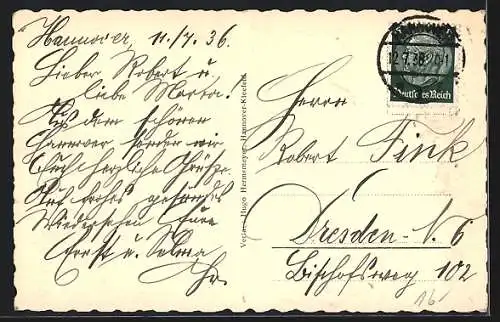 Hannover, 11./7. 36.
Lieber Robert u.
liebe Marta!
Aus dem schönen
Hannover senden wir
Euch herzliche Grüße.
Auf frohes gesundes
Wiedersehen Eure
Horst u. Selma
Verlag Hugo Hennemeyer, Hannover-Kleefeld
12.7.36.20-1
Deutsches Reich
Herrn
Robert Fink
Dresden-N. 6
Bischofsweg 102
16